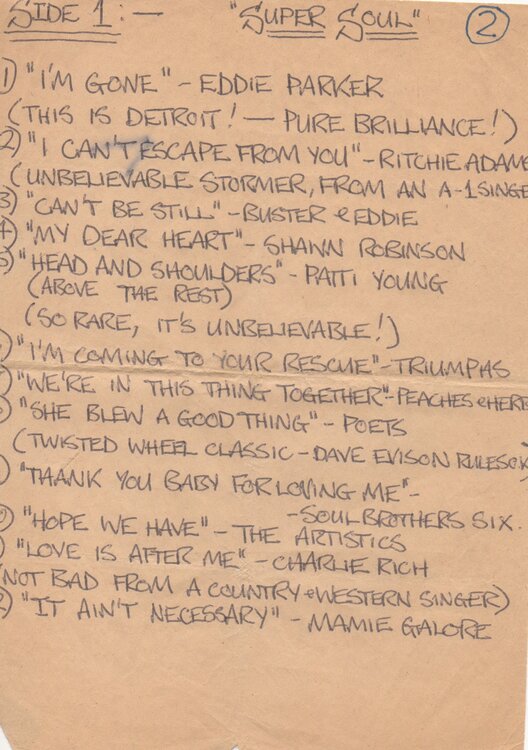 SIDE 1:— "SUPER SOUL" 2
1) "I'M GONE" - EDDIE PARKER
(THIS IS DETROIT! — PURE BRILLIANCE!)
2) "I CAN'T ESCAPE FROM YOU" - RITCHIE ADAMS
(UNBELIEVABLE STORMER, FROM AN A-1 SINGE
3) "CAN'T BE STILL" - BUSTER & EDDIE
4) "MY DEAR HEART" - SHAWN ROBINSON
5) "HEAD AND SHOULDERS" - PATTI YOUNG
(ABOVE THE REST)
(SO RARE, IT'S UNBELIEVABLE!)
) "I'M COMING TO YOUR RESCUE" - TRIUMPHS
) "WE'RE IN THIS THING TOGETHER" - PEACHES & HERB
) "SHE BLEW A GOOD THING" - POETS
(TWISTED WHEEL CLASSIC - DAVE EVISON RULES OK)
) "THANK YOU BABY FOR LOVING ME" -
- SOUL BROTHERS SIX.
) "HOPE WE HAVE" - THE ARTISTICS
) "LOVE IS AFTER ME" - CHARLIE RICH
(NOT BAD FROM A COUNTRY & WESTERN SINGER)
) "IT AIN'T NECESSARY" - MAMIE GALORE